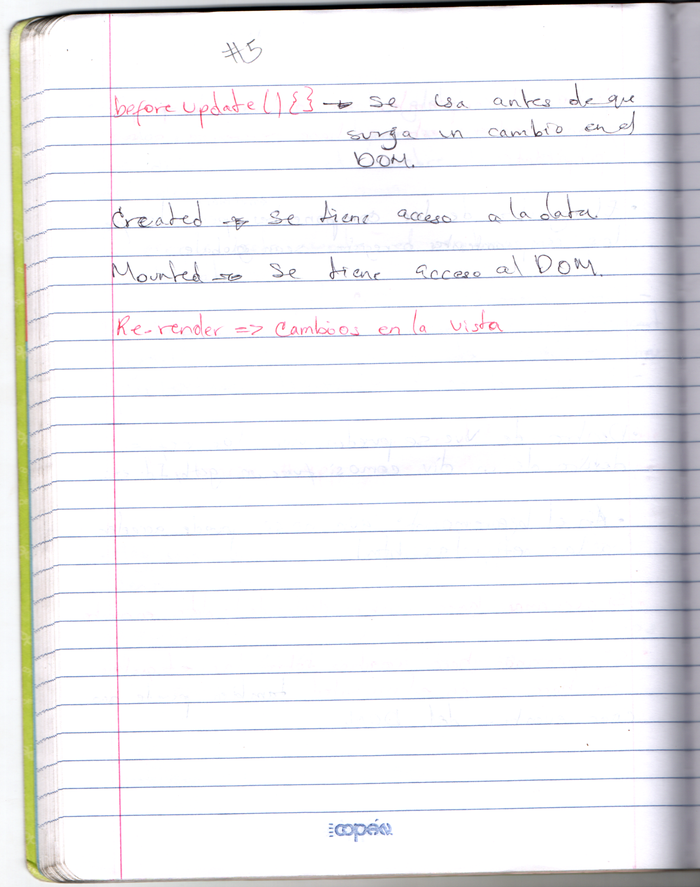 #5
beforeUpdate(){} → Se usa antes de que
surga un cambio en el
DOM.
Created → Se tiene acceso a la data.
Mounted → Se tiene acceso al DOM.
Re-render => Cambios en la vista
copán